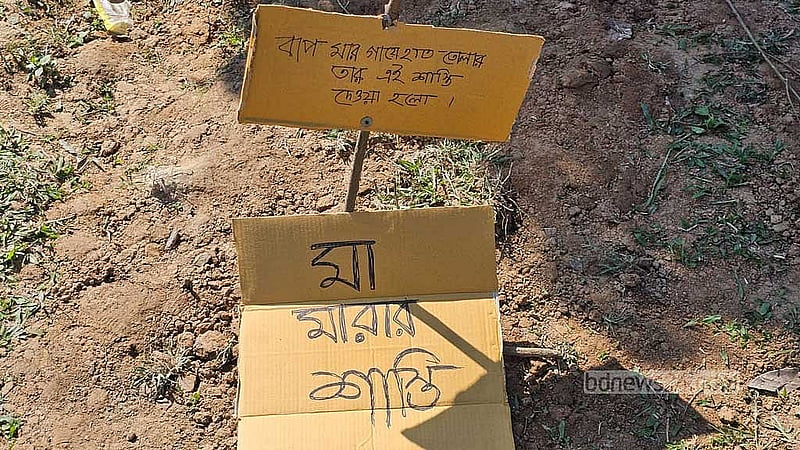 বাপ মার গায়ে হাত তোলার
তার এই শাস্তি
দেওয়া হলো।
মা
মারার
শাস্তি
bdnews